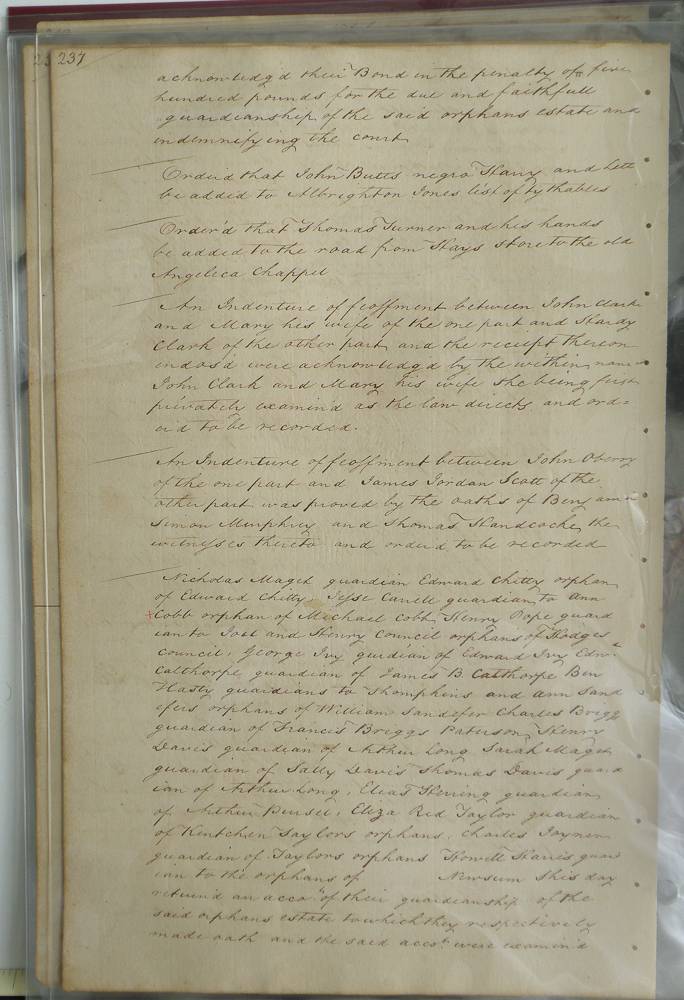 237
acknowledg'd their Bond in the penalty of five
hundred pounds for the due and faithfull
guardianship of the said orphans estate and
indemnifying the court
Order'd that John Butts negro Harry and Lett
be added to Albrighton Jones list of tythables
Order'd that Thomas Turner and his hands
be added to the road from Hays store to the old
Angelica Chappel
An Indenture of feoffment between John Clark
and Mary his wife of the one part and Hardy
Clark of the other part and the receipt thereon
indos'd were acknowledg'd by the within
John Clark and Mary his wife she being first
privately examin'd as the law directs and ord=
er'd to be recorded.
An Indenture of feoffment between John Oberry
of the one part and James Jordan Scott of the
other part was proved by the oaths of Benjamin
Simon Murphrey and Thomas Handcocke the
witnesses thereto and order'd to be recorded
Nicholas Maget guardian Edward Chitty orphan
of Edward Chitty, Jesse Carell guardian to Ann
Cobb orphan of Michael Cobb, Henry Pope guard
ian to Joel and Henry Council orphans of Hodges
Council, George Ivy guardian of Edward Ivy Edwd
Calthorpe guardian of James B. Calthorpe Ben
Hasty guardians to Thompkins and Ann Sand
efers orphans of William Sandefer Charles Briggs
guardian of Francis Briggs Paterson, Henry
Davis guardian of Arthur Long Sarah Maget
guardian of Sally Davis Thomas Davis guard
ian of Arthur Long, Elias Herring guardian
of Arthur Eliza Red Taylor guardian
of Kintchen Taylors orphans, Charles Joyner
guardian of Taylors orphans Howell Harris guard
ian to the orphans of Newsum this day
return'd an accot. of their guardianship of the
said orphans estate to which they respectively
made oath and the said accots were examin'd